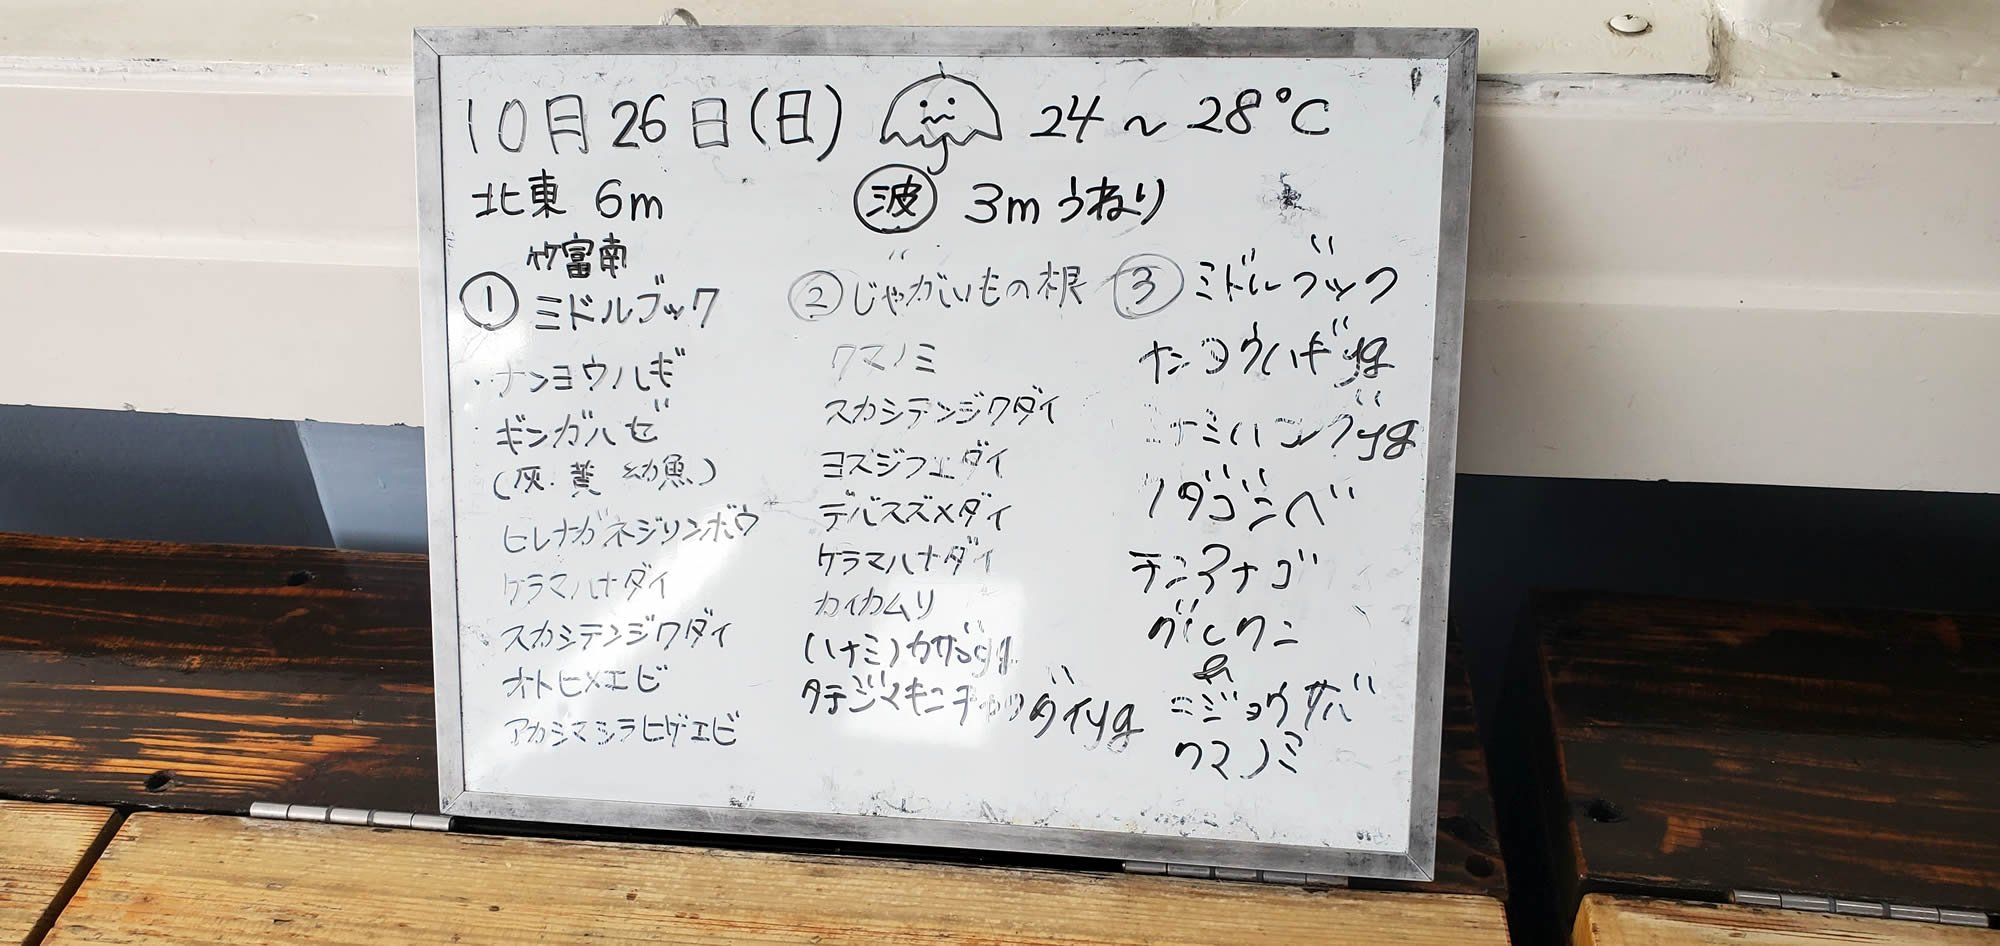 10月26日(日) 24～28°C
北東 6m 波 3m うねり
竹富南
① ミドルブック
ナンヨウハギ
ギンガハゼ
(灰・黄 幼魚)
ヒレナガネジリンボウ
ケラマハナダイ
スカシテンジクダイ
オトヒメエビ
アカシマシラヒゲエビ
② じゃがいもの根
クマノミ
スカシテンジクダイ
ヨスジフエダイ
デバスズメダイ
ケラマハナダイ
カイカムリ
(ハナミ)カサゴyg
タテジマキンチャクダイyg
③ ミドルブック
ナンヨウハギyg
ミナミハコフグyg
ノダゴンベ
チンアナゴ
グルクン
&
ニジョウサバ
クマノミ